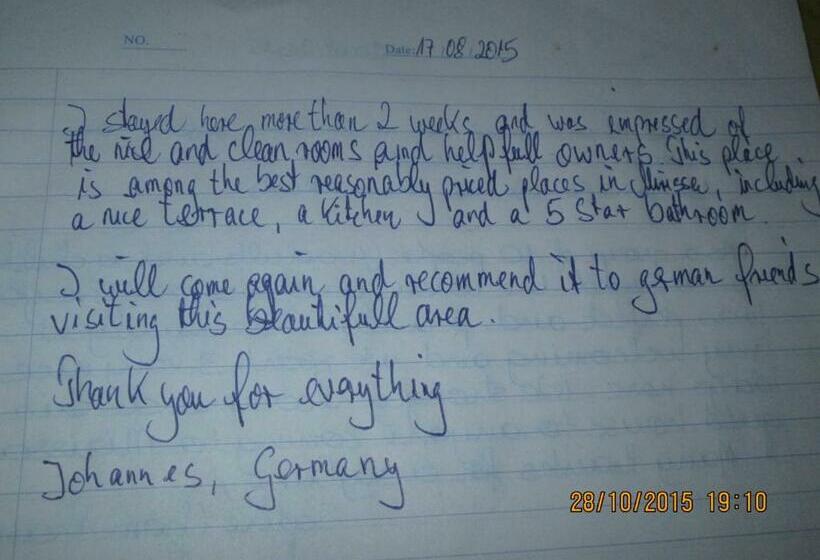 NO.
Date: 17 08 2015
I stayed here more than 2 weeks and was impressed of
the nice and clean rooms and helpfull owners. This place
is among the best reasonably priced places in Mirissa, including
a nice terrace, a kitchen and a 5 Star bathroom.
I will come again and recommend it to german friends
visiting this beautifull area.
Thank you for everything
Johannes, Germany
28/10/2015 19:10